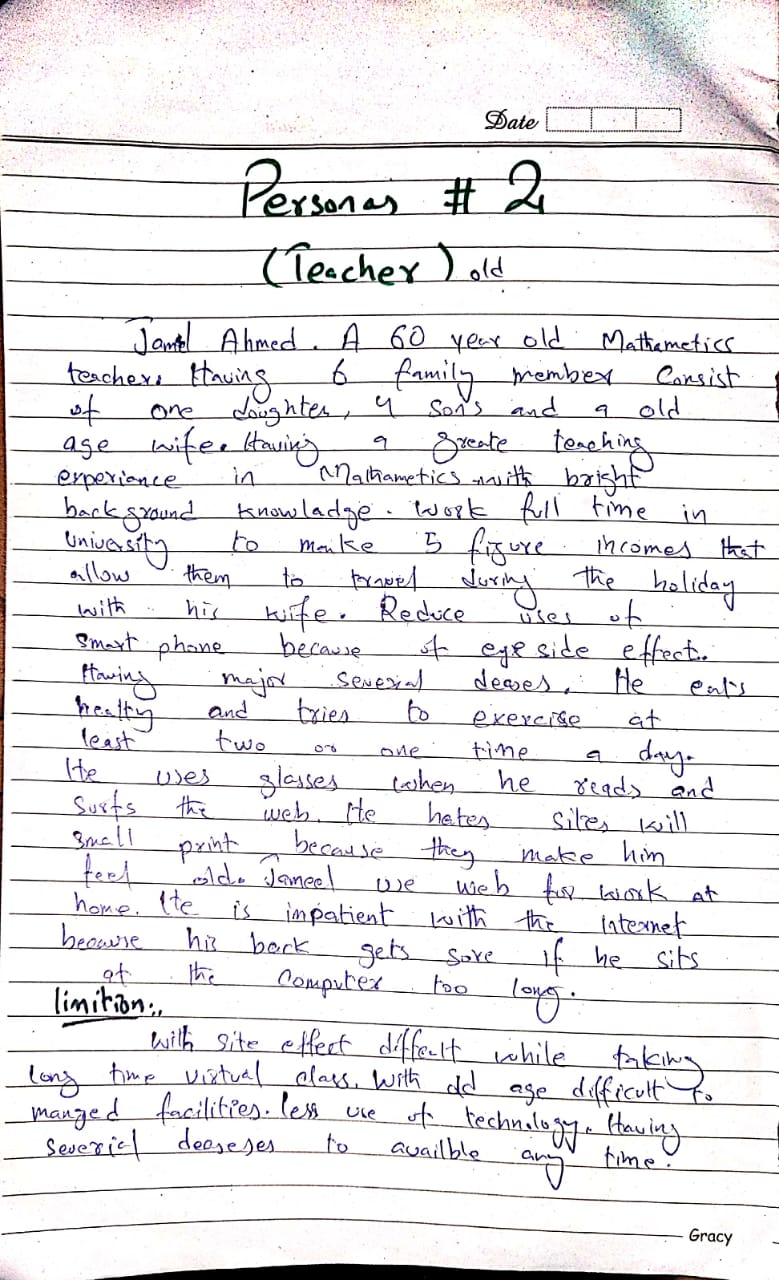 Date
Personas # 2
(Teacher) old
Jamel Ahmed. A 60 year old Mathametics
teacher. Having 6 family member Consist
of one doughter, 4 son's and a old
age wife. Having a greate teaching
experiance in Mathametics with bright
background knowladge. Work full time in
University to make 5 figure incomes that
allow them to travel during the holiday
with his wife. Reduce uses of
Smart phone because of eye side effect.
Having major severial deases. He eats
healty and tries to exercise at
least two or one time a day.
He uses glasses when he reads and
Surfs the web. He hates sites will
small print because they make him
feel old. Jameel use web for work at
home. He is impatient with the internet
because his back gets sore if he sits
at the Computer too long.
limition:,
With site effect difficult while taking
long time virtual class. With old age difficult to
manged facilities. less use of technology. Having
severial deaseses to availble any time.
Gracy